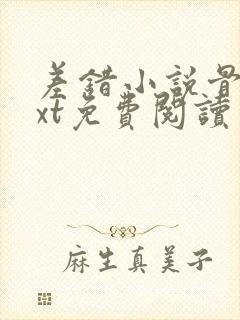 差錯小説骨
xt免費閱讀
麻生真美子